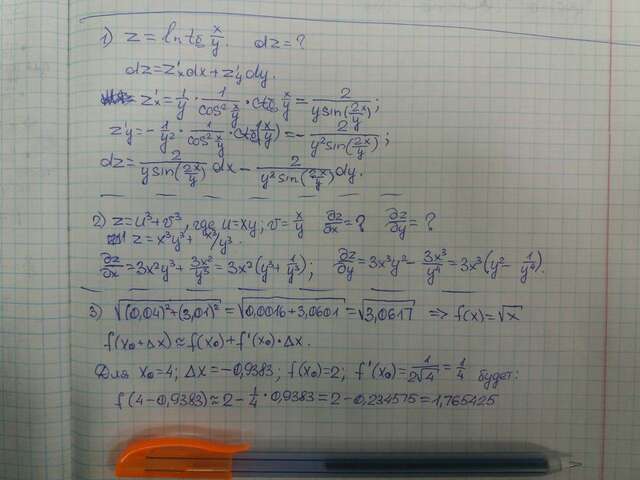 1) z = ln tg x/y. dz = ?
dz = z'ₓdx + z'ᵧdy.
= z'ₓ = 1/y · 1/cos² x/y · ctg x/y = 2/(y sin(2x/y));
z'ᵧ = -1/y² · 1/cos² x/y · ctg(x/y) = - 2/(y² sin(2x/y));
dz = 2/(y sin(2x/y)) dx - 2/(y² sin(2x/y)) dy.
2) z = u³ + v³, где u = xy; v = x/y ∂z/∂x = ? ∂z/∂y = ?
z = x³y³ + x³/y³.
∂z/∂x = 3x²y³ + 3x²/y³ = 3x²(y³ + 1/y³); ∂z/∂y = 3x³y² - 3x³/y⁴ = 3x³(y² - 1/y⁴).
3) √((0,04)² + (3,01)²) = √(0,0016 + 3,0601) = √3,0617 => f(x) = √x
f(x₀ + Δx) ≈ f(x₀) + f'(x₀) · Δx.
Для x₀ = 4; Δx = -0,9383; f(x₀) = 2; f'(x₀) = 1/(2√4) = 1/4 будет:
f(4 - 0,9383) ≈ 2 - 1/4 · 0,9383 = 2 - 0,234575 = 1,765425